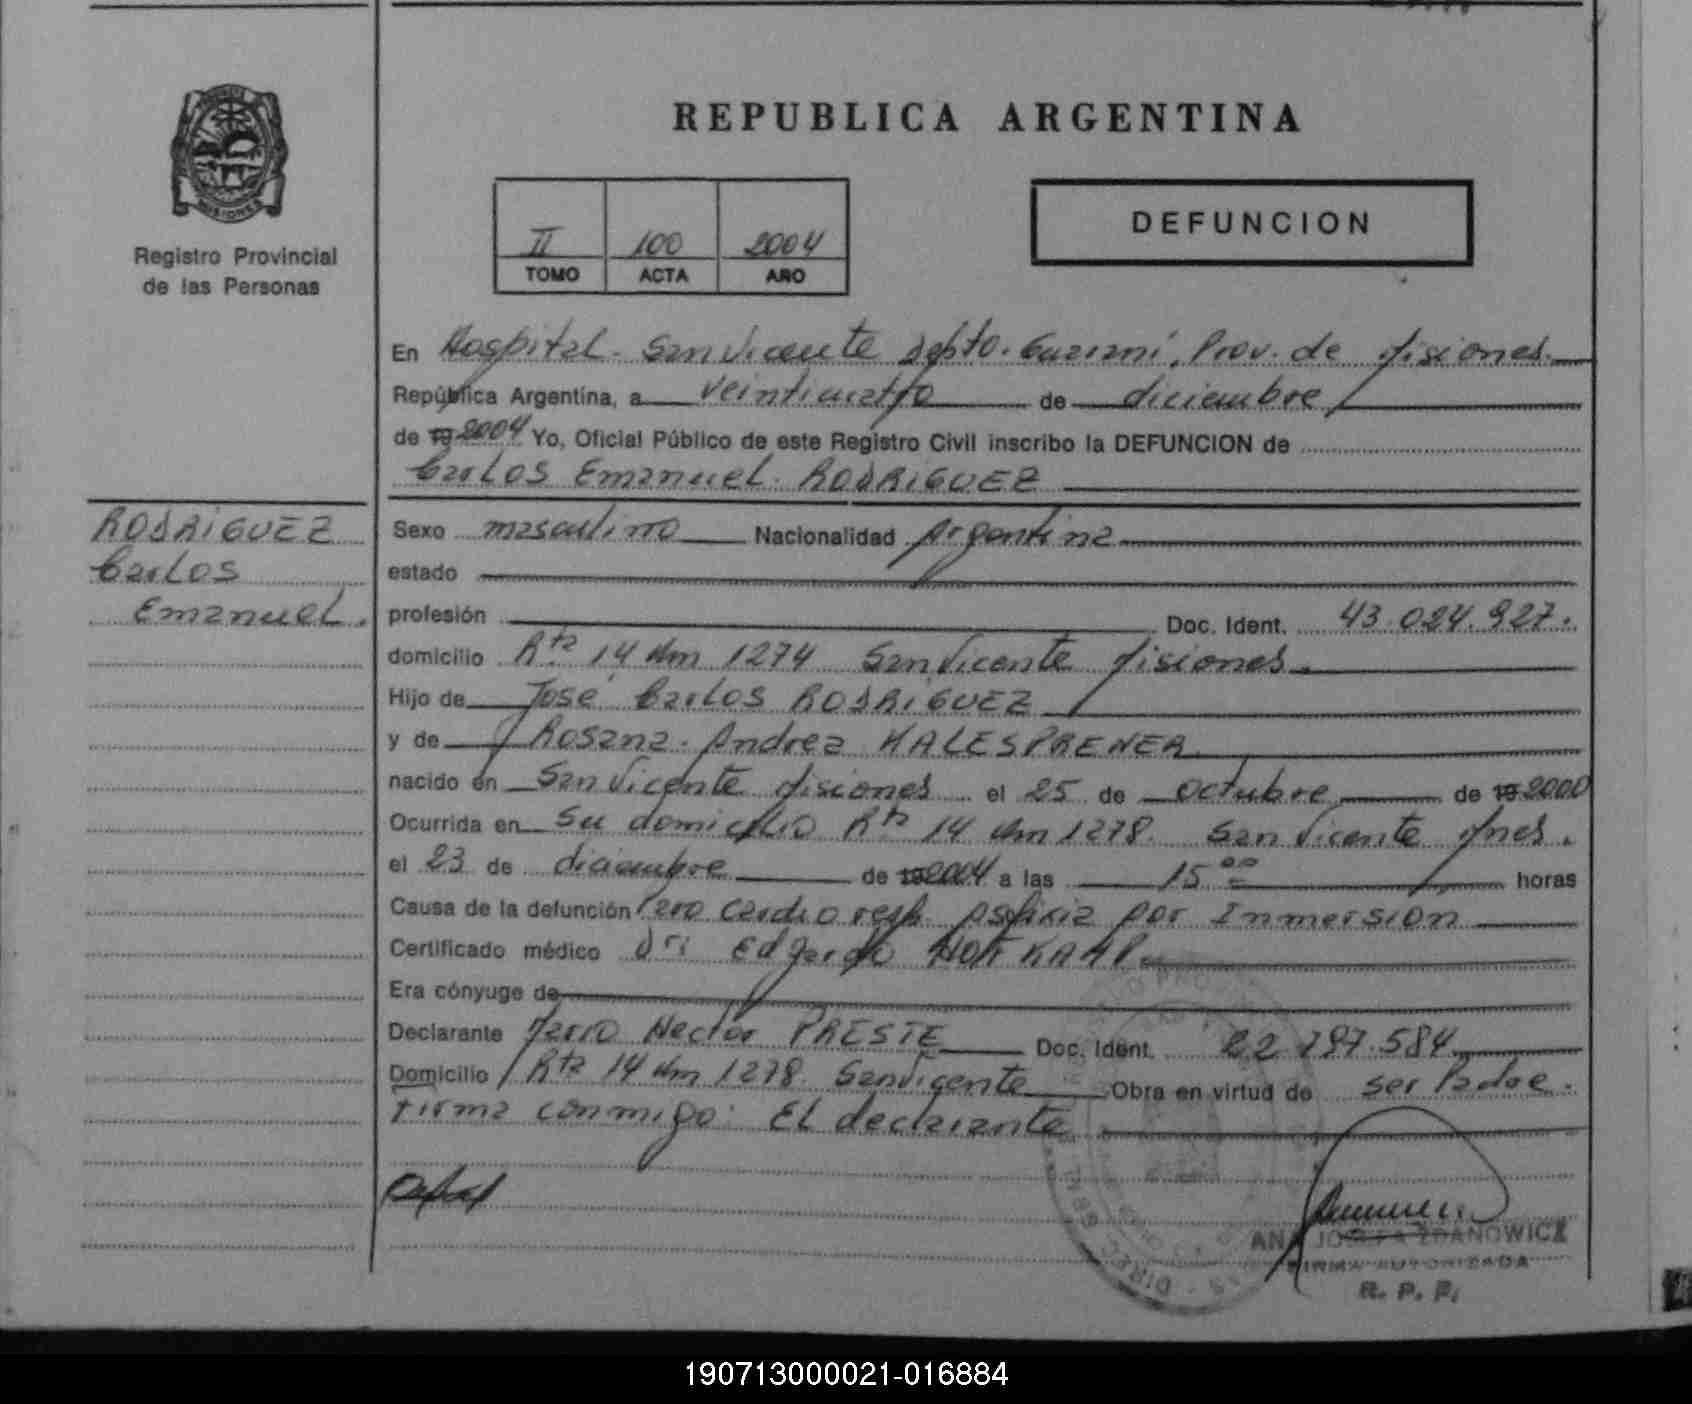 REPUBLICA ARGENTINA
MISIONES
Registro Provincial
de las Personas
II 100 2004
TOMO ACTA AÑO
DEFUNCION
En Hospital San Vicente Depto. Guaraní, Prov. de Misiones
República Argentina, a veinticuatro de diciembre
de 19 2004 Yo, Oficial Público de este Registro Civil inscribo la DEFUNCION de
Carlos Emanuel RODRIGUEZ
RODRIGUEZ
Carlos
Emanuel.
Sexo masculino Nacionalidad Argentina
estado
profesión Doc. Ident. 43.024.927.
domicilio Rta 14 Km 1274 San Vicente Misiones.
Hijo de José Carlos RODRIGUEZ
y de Rosana Andrea
nacido en San Vicente Misiones el 25 de octubre de 19 2000
Ocurrida en Su domicilio Rta 14 Km 1278. San Vicente Mnes.
el 23 de diciembre de 19 2004 a las 15 00 horas
Causa de la defunción Paro Cardio resp. Asfixia por Inmersion
Certificado médico Dr. Edgardo
Era cónyuge de
Declarante Mario Hector PRESTE Doc. Ident. 22.797.584
Domicilio Rta 14 Km 1278. San Vicente Obra en virtud de ser Padre.
Firma conmigo: El declarante
ANA JOSEFA ZDANOWICZ
FIRMA AUTORIZADA
R. P. P.
190713000021-016884